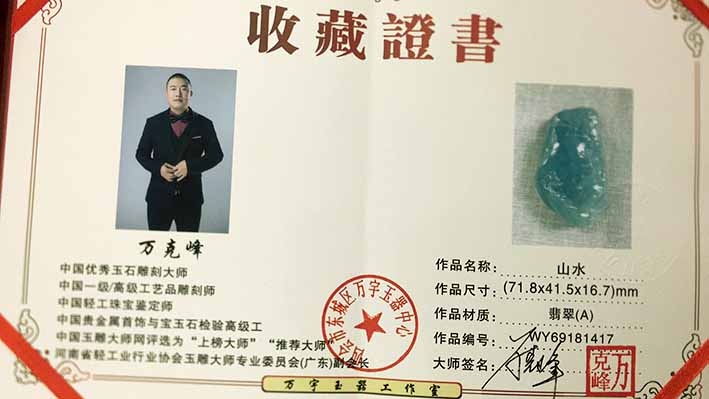 收藏證書
万克峰
中国优秀玉石雕刻大师
中国一级/高级工艺品雕刻师
中国轻工珠宝鉴定师
中国贵金属首饰与宝玉石检验高级工
中国玉雕大师网评选为“上榜大师” “推荐大师”
河南省轻工业行业协会玉雕大师专业委员会(广东)副会长
作品名称: 山水
作品尺寸: (71.8x41.5x16.7)mm
作品材质: 翡翠(A)
作品编号: WY69181417
大师签名: 万克峰
万克峰
东城区万宇玉器中心
万宇玉器工作室